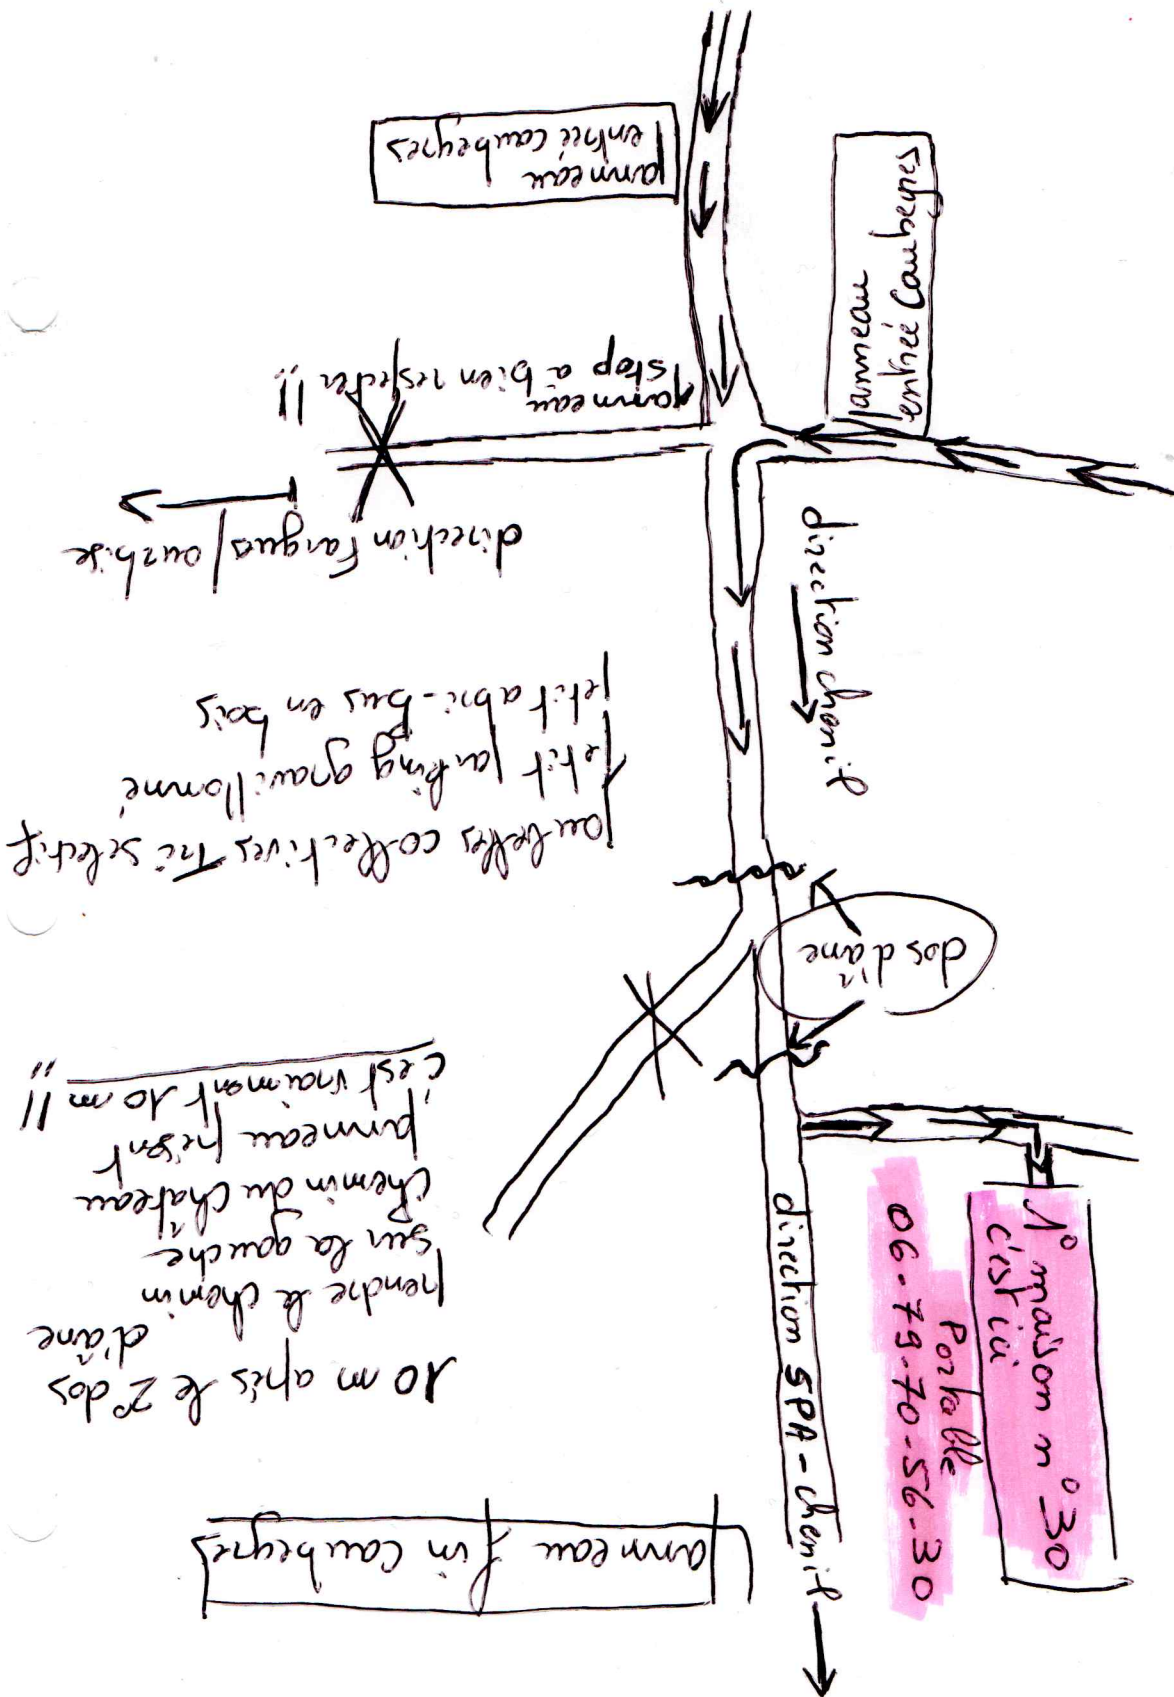 panneau
entrée caubeyres
panneau
entrée Caubeyres
panneau
stop a bien respecter !!
direction Fargues/ourbise
direction chenil
petit abri-bus en bois
petit parking gravillonné
poubelles collectives Tri selectif
dos d'âne
10 m après le 2° dos
d'âne
prendre le chemin
sur la gauche
chemin du château
panneau présent
c'est vraiment 10 m !!
direction SPA-chenil
1° maison n° 30
c'est ici
Portable
06-79-70-56-30
panneau fin caubeyres